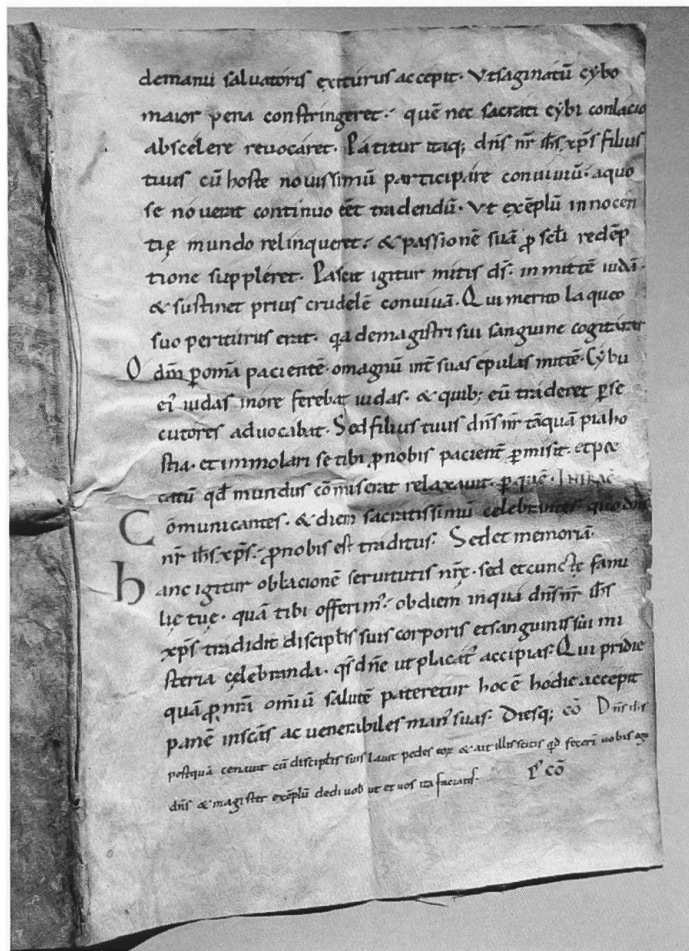 demanu salvatoris exiturus accepit. Vt saginatū cybo
maior pena constringeret. quē nec sacrati cybi conlacio
abscelere revocaret. Patitur itaq; dn̄s nr̄ ih̄s xp̄s filius
tuus cū hoste novissimū participare conviviū. aquo
se noverat continuo eēt tradendū. Vt exēplū innocen
tię mundo relinqueret. & passionē suā ꝓ scl̄i redēp
tione suppleret. Pascit igitur mitis ds̄. inmittē iudā.
& sustinet prius crudelē convivā. Qui merito laqueo
suo periturus erat. qa demagistri sui sanguine cogitarat
O dn̄m ꝑ om̄a pacientē. o magnū int̄ suas epulas mitē. Cybū
ei' iudas inore ferebat iudas. & quib; eū traderet ꝑse
cutores advocabat. Sed filius tuus dn̄s nr̄ tāquā pia ho
stia. et immolari se tibi ꝓ nobis pacient̄ ꝑmisit. et pec
catū qd̄ mundus cōmiserat relaxavit. ꝑ quē.
Cōmunicantes. & diem sacratissimū celebrantes. quo dn̄s
nr̄ ih̄s xp̄s. ꝓnobis est traditus. Sed et memoriā.
hanc igitur oblacionē servitutis nr̄e. sed et cunctę fami
lię tuę. quā tibi offerim'. ob diem inquā dn̄s nr̄ ih̄s
xp̄s tradidit discipl̄is suis corporis et sanguinis sui mi
steria cęlebranda. qs̄ dn̄e ut placat' accipias. Qui pridie
quā ꝓ nr̄a om̄iū salutē pateretur hoc ē hodie accepit
panē inscās ac venerabiles man' suas. Diesq; cō Dn̄s ih̄s
postquā cenavit cū discipl̄is suis lavit pedes eoꝝ & ait illis scitis qd̄ fecerī vobis ego
dn̄s & magister exēplū dedi vob ut et vos ita faciatis. p' cō